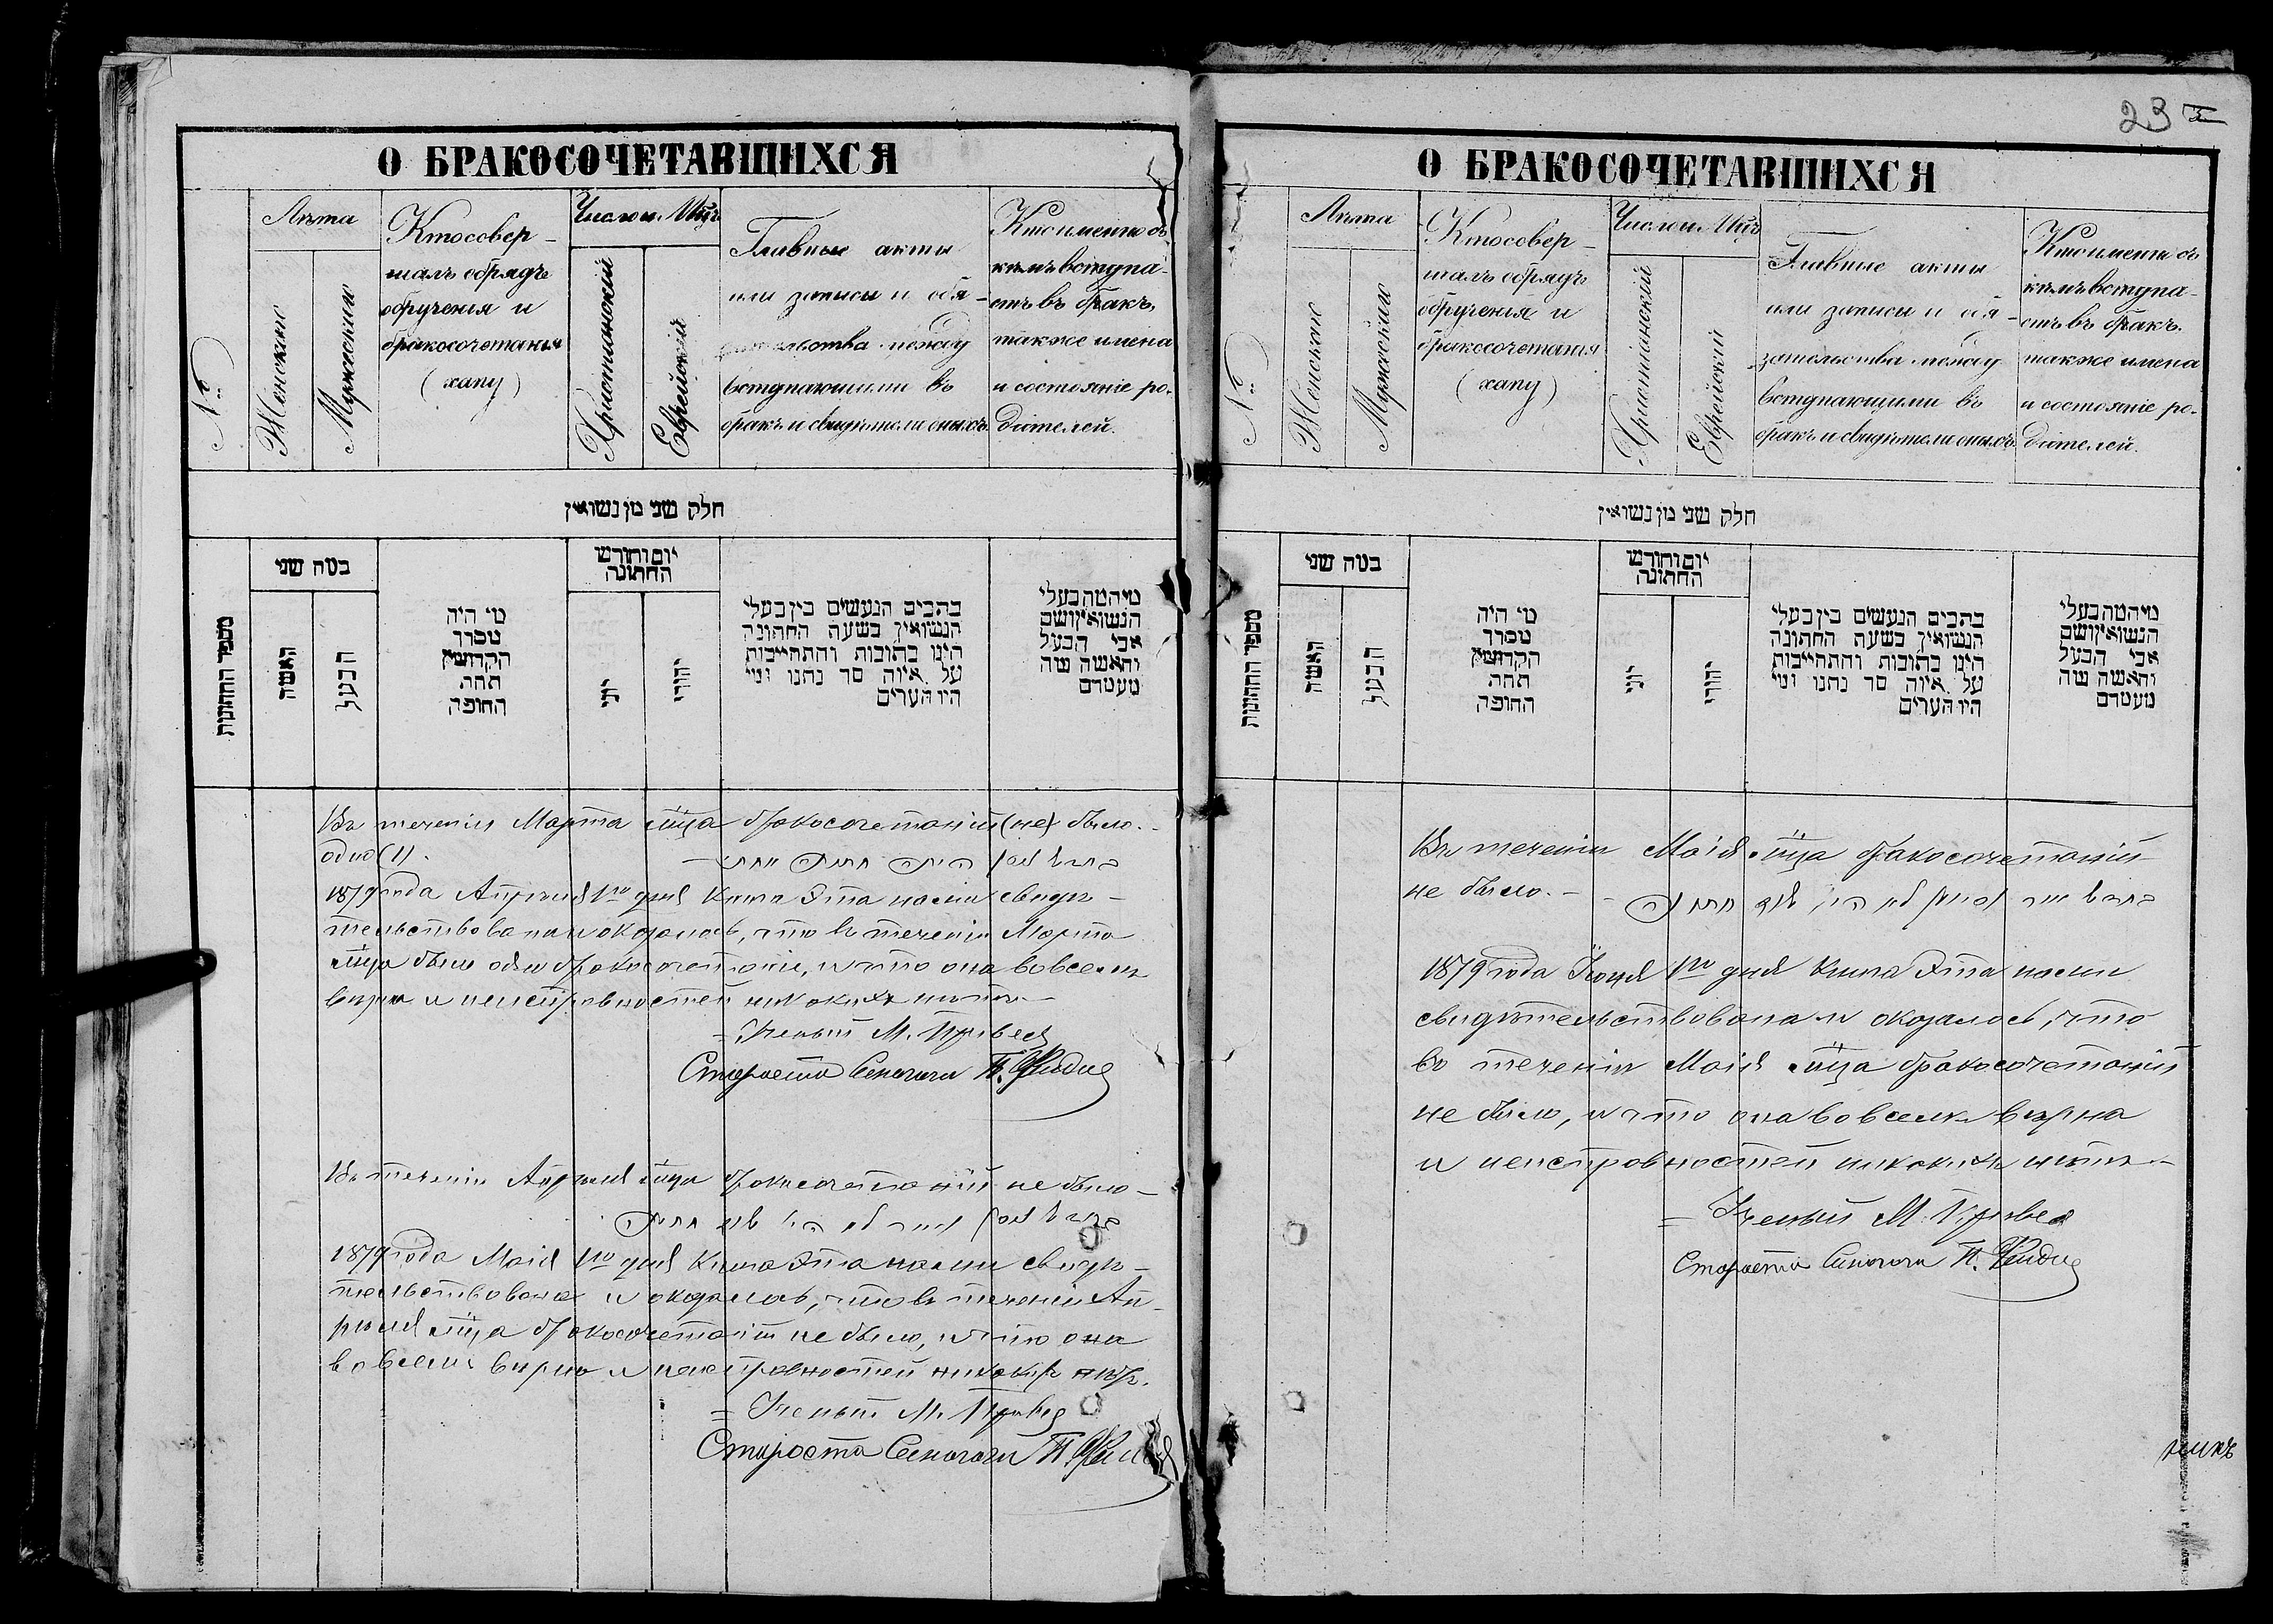 О БРАКОСОЧЕТАВШИХСЯ
№
Лѣта
Женскіе
Мужескіе
Кто совер-
шалъ обрядъ
обрученія и
бракосочетанія
(хапу)
Число и Мѣц.
Христіанскій
Еврейскій
Главные акты
или записи и обя-
зательства между
вступающими въ
бракъ и свидѣтели оныхъ
Кто именно съ
кѣмъ вступа-
етъ въ бракъ,
также имена
и состояніе ро-
дителей.
חלק שני מן נשואין
מספר החתונות
כמה שני
האשה
הבעל
מי היה
מסדר
הקדושין
תחת
החופה
יום וחודש
החתונה
יוני
יהודי
כתבים הנעשים בין בעלי
הנשואין בשעה החתונה
היינו כתובות והתחייבות
על איזה סך נתנו ומי
היו העדים
מי המה בעלי
הנשואין ושם
אבי הבעל
והאשה מה
מעמדם
Въ теченіи Марта мѣца бракосочетаній (не) было.
одно (1).
1879 года Апрѣля 1го дня Книга Эта нами свидѣ-
тельствована и оказалось, что въ теченіи Марта
мѣца было одно бракосочетаніе, и что она во всемъ
вѣрна и неисправностей никакихъ нѣтъ.
= Ученый М.
Староста Синагоги П.
Въ теченіи Апрѣля мѣца бракосочетаній не было-
1879 года Маія 1го дня Книга Эта нами свидѣ-
тельствована и оказалось, что въ теченіи Ап-
рѣля мѣца бракосочетаній не было, и что она
во всемъ вѣрна и неисправностей никакихъ нѣтъ.
= Ученый М.
Староста Синагоги П.
23
О БРАКОСОЧЕТАВШИХСЯ
№
Лѣта
Женскіе
Мужескіе
Кто совер-
шалъ обрядъ
обрученія и
бракосочетанія
(хапу)
Число и Мѣц.
Христіанскій
Еврейскій
Главные акты
или записи и обя-
зательства между
вступающими въ
бракъ и свидѣтели оныхъ
Кто именно съ
кѣмъ вступа-
етъ въ бракъ,
также имена
и состояніе ро-
дителей.
חלק שני מן נשואין
מספר החתונות
כמה שני
האשה
הבעל
מי היה
מסדר
הקדושין
תחת
החופה
יום וחודש
החתונה
יוני
יהודי
כתבים הנעשים בין בעלי
הנשואין בשעה החתונה
היינו כתובות והתחייבות
על איזה סך נתנו ומי
היו העדים
מי המה בעלי
הנשואין ושם
אבי הבעל
והאשה מה
מעמדם
Въ теченіи Маія мѣца бракосочетаній
не было. -
1879 года Іюня 1го дня Книга Эта нами
свидѣтельствована и оказалось, что
въ теченіи Маія мѣца бракосочетаній
не было, и что она во всемъ вѣрна
и неисправностей никакихъ нѣтъ-
= Ученый М.
Староста Синагоги П.